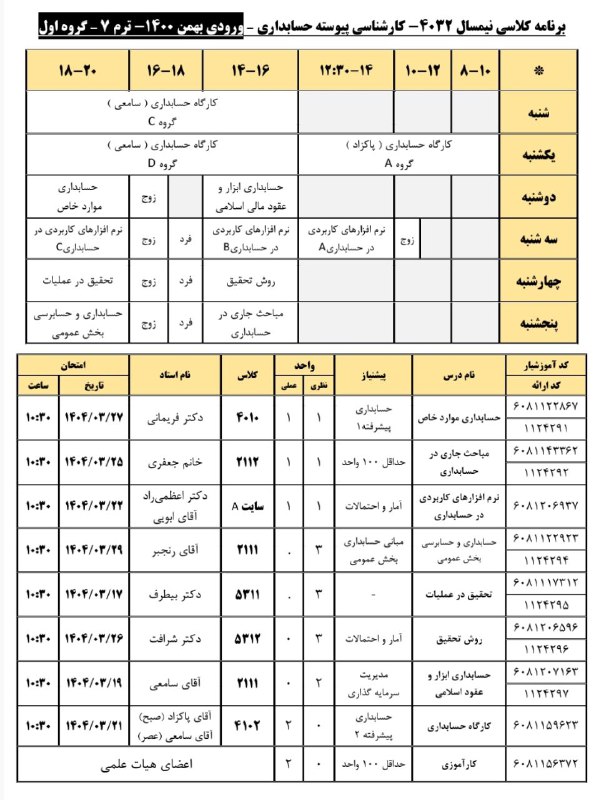 برنامه کلاسی نیمسال ۴۰۳۲- کارشناسی پیوسته حسابداری - ورودی بهمن ۱۴۰۰- ترم ۷ - گروه اول
* ۸-۱۰ ۱۰-۱۲ ۱۲:۳۰-۱۴ ۱۴-۱۶ ۱۶-۱۸ ۱۸-۲۰
شنبه
کارگاه حسابداری ( سامعی )
گروه C
یکشنبه
کارگاه حسابداری ( پاکزاد )
گروه A
کارگاه حسابداری ( سامعی )
گروه D
دوشنبه
حسابداری ابزار و
عقود مالی اسلامی
زوج
حسابداری
موارد خاص
سه شنبه
زوج
نرم افزارهای کاربردی
در حسابداریA
نرم افزارهای کاربردی
در حسابداریB
فرد
زوج
نرم افزارهای کاربردی در
حسابداریC
چهارشنبه
روش تحقیق
فرد
زوج
تحقیق در عملیات
پنجشنبه
مباحث جاری در
حسابداری
فرد
زوج
حسابداری و حسابرسی
بخش عمومی
کد آموزشیار
کد ارائه
نام درس
پیشنیاز
واحد
نظری عملی
کلاس
نام استاد
امتحان
تاریخ ساعت
۶۰۸۱۱۲۲۸۶۷
۱۱۲۴۲۹۱
حسابداری موارد خاص
حسابداری
پیشرفته۱
۱ ۱ ۴۰۱۰ دکتر فریمانی ۱۴۰۴/۰۳/۲۷ ۱۰:۳۰
۶۰۸۱۱۴۳۳۶۲
۱۱۲۴۲۹۲
مباحث جاری در
حسابداری
حداقل ۱۰۰ واحد ۱ ۱ ۲۱۱۲ خانم جعفری ۱۴۰۴/۰۳/۲۵ ۱۰:۳۰
۶۰۸۱۲۰۶۹۳۷
نرم افزارهای کاربردی
در حسابداری
آمار و احتمالات ۱ ۱ سایت A
دکتر اعظمی‌راد
آقای ابویی
۱۴۰۴/۰۳/۲۲ ۱۰:۳۰
۶۰۸۱۱۲۲۹۲۳
۱۱۲۴۲۹۴
حسابداری و حسابرسی
بخش عمومی
مبانی حسابداری
بخش عمومی
۳ . ۲۱۱۱ آقای رنجبر ۱۴۰۴/۰۳/۲۹ ۱۰:۳۰
۶۰۸۱۱۱۷۳۱۲
۱۱۲۴۲۹۵
تحقیق در عملیات - ۳ . ۵۳۱۱ دکتر بیطرف ۱۴۰۴/۰۳/۱۷ ۱۰:۳۰
۶۰۸۱۲۰۶۵۹۶
۱۱۲۴۲۹۶
روش تحقیق آمار و احتمالات ۳ ۰ ۵۳۱۲ دکتر شرافت ۱۴۰۴/۰۳/۲۶ ۱۰:۳۰
۶۰۸۱۲۰۷۱۶۳
۱۱۲۴۲۹۷
حسابداری ابزار و
عقود اسلامی
مدیریت
سرمایه گذاری
۲ ۰ ۲۱۱۱ آقای سامعی ۱۴۰۴/۰۳/۱۹ ۱۰:۳۰
۶۰۸۱۱۵۹۶۲۳
کارگاه حسابداری
حسابداری
پیشرفته ۲
۰ ۲ ۴۱۰۲
آقای پاکزاد (صبح)
آقای سامعی (عصر)
۱۴۰۴/۰۳/۲۱ ۱۰:۳۰
۶۰۸۱۱۵۶۳۷۲ کارآموزی حداقل ۱۰۰ واحد ۰ ۲ اعضای هیات علمی